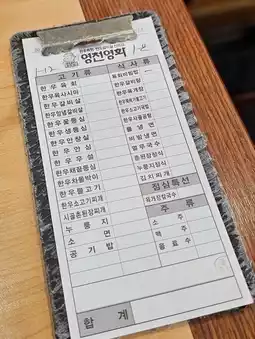 영천영화
고기류
식사류
한우육회
육회비빔밥
한우육사시미
한우갈비탕
한우갈비살
한우육개장
한우양념갈비살
한우꽃등심
한우생등심
한우안창살
한우사골곰탕
한우안심
물냉면
한우우설
비빔냉면
한우채끝등심
열무국수
한우차돌박이
된장찌개
한우불고기
누룽지정식
한우소고기찌개
김치찌개
시골촌된장찌개
점심특선
누룽지
육개장칼국수
소면
주류
공기밥
소주
맥주
음료수
합계